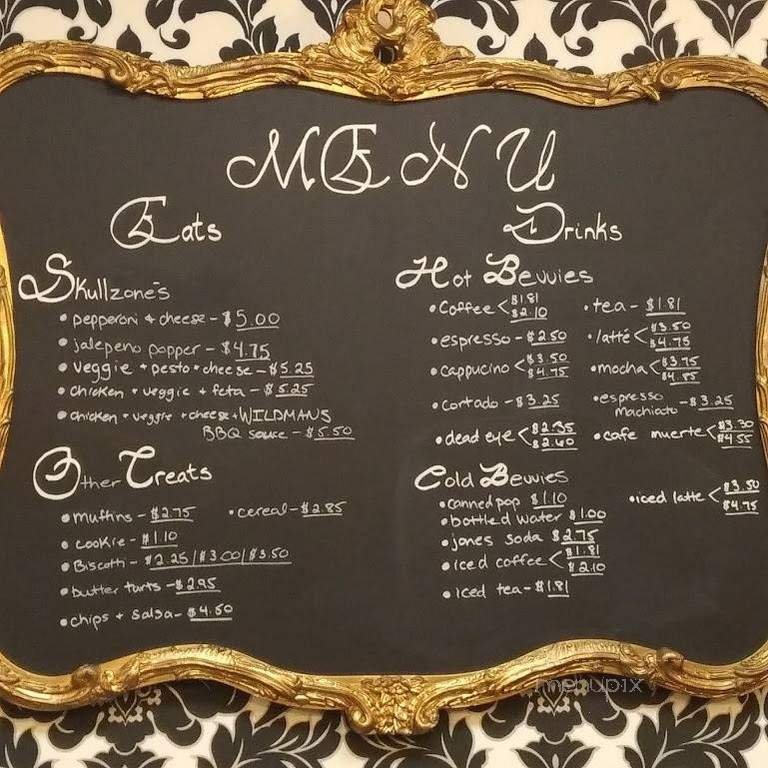 MENU
Eats
Skullzone's
• pepperoni + cheese - $5.00
• jalepeno popper - $4.75
• veggie + pesto + cheese - $5.25
• chicken + veggie + feta - $5.25
• chicken + veggie + cheese + WILDMANS
BBQ sauce - $5.50
Other Treats
• muffins - $2.75 • cereal - $2.85
• cookie - $1.10
• Biscotti - $2.25/$3.00/$3.50
• butter tarts - $2.95
• chips + salsa - $4.50
Drinks
Hot Bevvies
• Coffee < $1.81 $2.10 • tea - $1.81
• espresso - $2.50 • latté < $3.50 $4.75
• cappucino < $3.50 $4.75 • mocha < $3.75 $4.85
• cortado - $3.25 • espresso
machiato - $3.25
• dead eye < $2.35 $2.60 • cafe muerte < $3.30 $4.55
Cold Bevvies
• canned pop $1.10 • iced latte < $3.50 $4.75
• bottled water $1.00
• jones soda $2.75
• iced coffee < $1.81 $2.10
• iced tea - $1.81
menupix